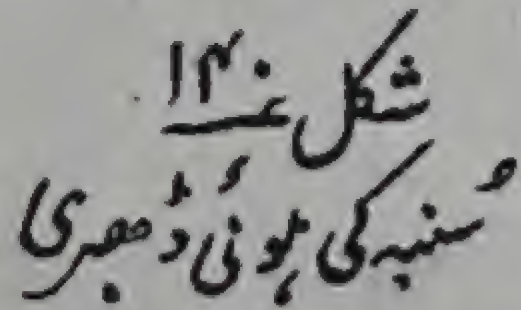 شکل ۱۴۰
سُنبہ کی ہوئی ڈھبری